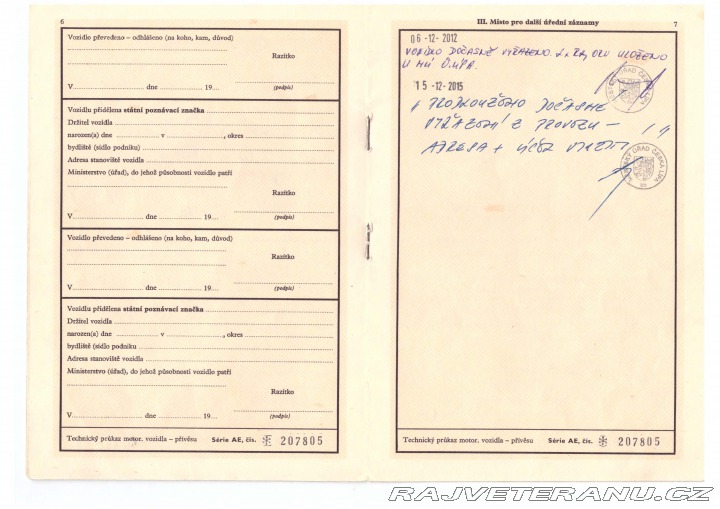 6
Vozidlo převedeno – odhlášeno (na koho, kam, důvod)
Razítko
V dne 19...
(podpis)
Vozidlu přidělena státní poznávací značka
Držitel vozidla
narozen(a) dne v , okres
bydliště (sídlo podniku)
Adresa stanoviště vozidla
Ministerstvo (úřad), do jehož působnosti vozidlo patří
Razítko
V dne 19...
(podpis)
Vozidlo převedeno – odhlášeno (na koho, kam, důvod)
Razítko
V dne 19...
(podpis)
Vozidlu přidělena státní poznávací značka
Držitel vozidla
narozen(a) dne v , okres
bydliště (sídlo podniku)
Adresa stanoviště vozidla
Ministerstvo (úřad), do jehož působnosti vozidlo patří
Razítko
V dne 19...
(podpis)
Technický průkaz motor. vozidla – přívěsu Série AE, čís. 207805
III. Místo pro další úřední záznamy 7
06 -12- 2012
VOZIDLO DOČASNĚ VYŘAZENO. ULOŽENO
U MÚ
15 -12- 2015
DOČASNÉ
VYŘAZENÍ Z PROVOZU –
ADRESA + ÚČEL
MĚSTSKÝ ÚŘAD ČESKÁ LÍPA
MĚSTSKÝ ÚŘAD ČESKÁ LÍPA
Technický průkaz motor. vozidla – přívěsu Série AE, čís. 207805
RAJVETERANU.CZ